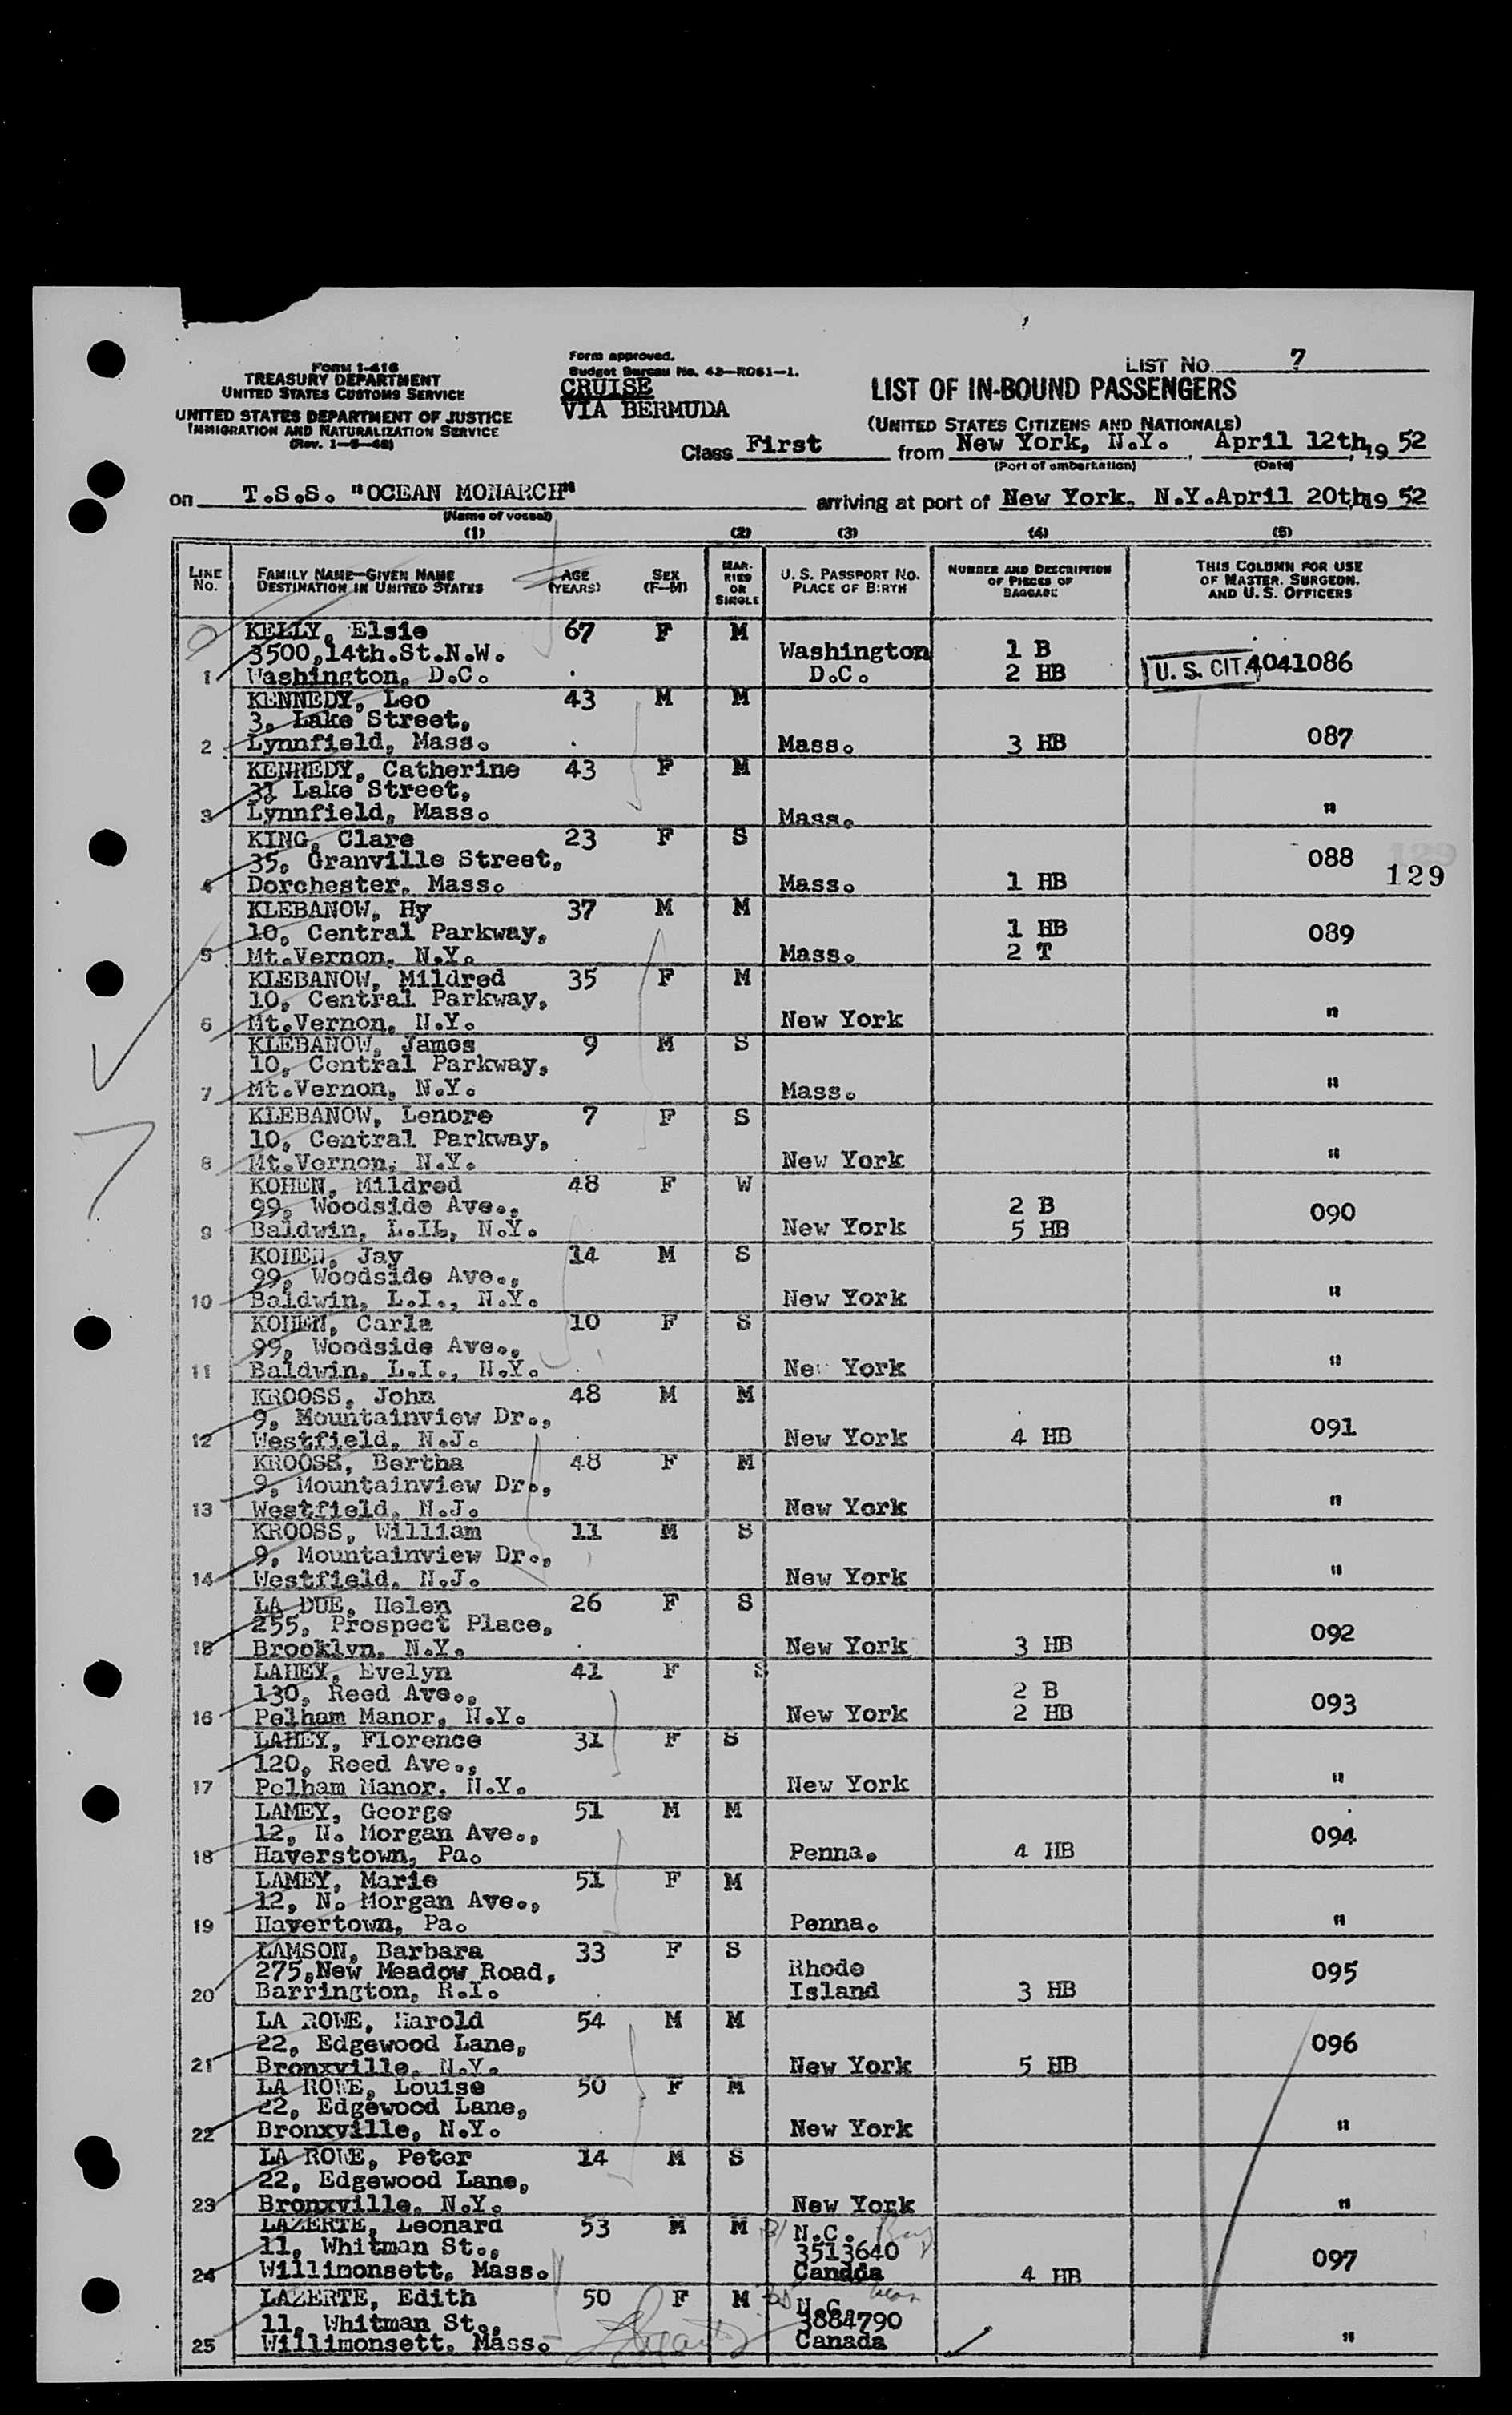 Form I-416
TREASURY DEPARTMENT
UNITED STATES CUSTOMS SERVICE
UNITED STATES DEPARTMENT OF JUSTICE
IMMIGRATION AND NATURALIZATION SERVICE
Form approved.
Budget Bureau No. 43—R061—1.
CRUISE
VIA BERMUDA
LIST NO. 7
LIST OF IN-BOUND PASSENGERS
(UNITED STATES CITIZENS AND NATIONALS)
Class First from New York, N.Y., April 12th, 19 52
(Port of embarkation) (Date)
on T.S.S. "OCEAN MONARCH" arriving at port of New York, N.Y. April 20th, 19 52
(Name of vessel)
(1) (2) (3) (4) (5)
LINE NO. FAMILY NAME—GIVEN NAME DESTINATION IN UNITED STATES AGE (YEARS) SEX (F—M) MARRIED OR SINGLE U. S. PASSPORT NO. PLACE OF BIRTH NUMBER AND DESCRIPTION OF PIECES OF BAGGAGE THIS COLUMN FOR USE OF MASTER, SURGEON, AND U. S. OFFICERS
KELLY, Elsie 67 F M
3500,14th.St.N.W. Washington 1 B
1 Washington, D.C. D.C. 2 HB U. S. CIT. 4041086
KENNEDY, Leo 43 M M
3, Lake Street,
2 Lynnfield, Mass. Mass. 3 HB 087
KENNEDY, Catherine 43 F M
3, Lake Street,
3 Lynnfield, Mass. Mass. "
KING, Clare 23 F S
35, Granville Street, 088
4 Dorchester, Mass. Mass. 1 HB 129
KLEBANOW, Hy 37 M M
10, Central Parkway, 1 HB 089
5 Mt.Vernon, N.Y. Mass. 2 T
KLEBANOW, Mildred 35 F M
10, Central Parkway,
6 Mt.Vernon, N.Y. New York "
KLEBANOW, James 9 M S
10, Central Parkway,
7 Mt.Vernon, N.Y. Mass. "
KLEBANOW, Lenore 7 F S
10, Central Parkway,
8 Mt.Vernon, N.Y. New York "
KOHEN, Mildred 48 F W
99, Woodside Ave., 2 B 090
9 Baldwin, L.I., N.Y. New York 5 HB
KOHEN, Jay 14 M S
99, Woodside Ave.,
10 Baldwin, L.I., N.Y. New York "
KOHEN, Carla 10 F S
99, Woodside Ave.,
11 Baldwin, L.I., N.Y. New York "
KROOSS, John 48 M M
9, Mountainview Dr., 091
12 Westfield, N.J. New York 4 HB
KROOSS, Bertha 48 F M
9, Mountainview Dr.,
13 Westfield, N.J. New York "
KROOSS, William 11 M S
9, Mountainview Dr.,
14 Westfield, N.J. New York "
LA DUE, Helen 26 F S
255, Prospect Place, 092
15 Brooklyn, N.Y. New York 3 HB
LAHEY, Evelyn 41 F S
130, Reed Ave., 2 B 093
16 Pelham Manor, N.Y. New York 2 HB
LAHEY, Florence 31 F S
120, Reed Ave.,
17 Pelham Manor, N.Y. New York "
LAMEY, George 51 M M
12, N. Morgan Ave., 094
18 Haverstown, Pa. Penna. 4 HB
LAMEY, Marie 51 F M
12, N. Morgan Ave.,
19 Havertown, Pa. Penna. "
LAMSON, Barbara 33 F S
275,New Meadow Road, Rhode 095
20 Barrington, R.I. Island 3 HB
LA ROWE, Harold 54 M M
22, Edgewood Lane, 096
21 Bronxville, N.Y. New York 5 HB
LA ROWE, Louise 50 F M
22, Edgewood Lane,
22 Bronxville, N.Y. New York "
LA ROWE, Peter 14 M S
22, Edgewood Lane,
23 Bronxville, N.Y. New York "
LAZERTE, Leonard 53 M M N.C.
11, Whitman St., 3513640 097
24 Willimonsett, Mass. Canada 4 HB
LAZERTE, Edith 50 F M N.C.
11, Whitman St., 3884790
25 Willimonsett, Mass. Canada "